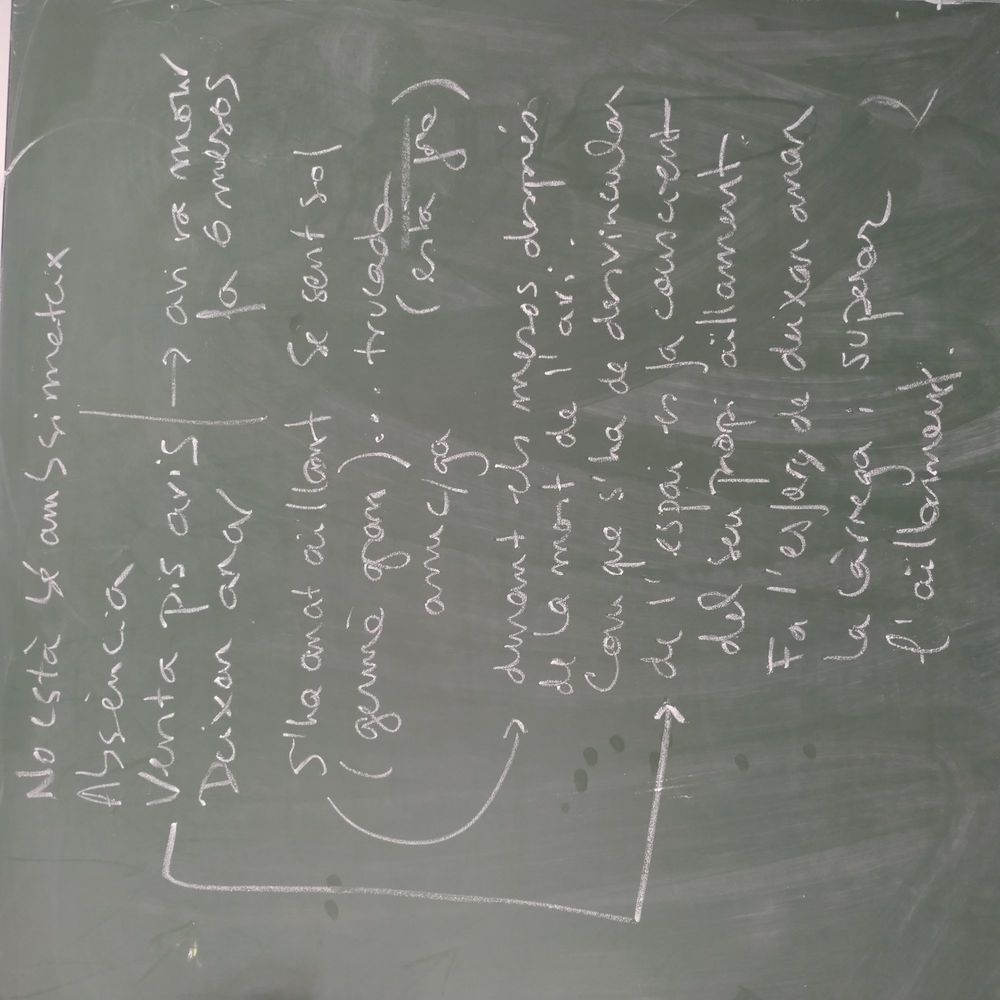 No està bé amb si mateix
Absència
Venta pis avis → avi va morir
fa 6 mesos
Deixar anar
S'ha anat aïllant Se sent sol
(germà gran)... trucada
amic/ga (enta fora)
durant els mesos després
de la mort de l'avi.
Com que s'ha de desvincular
de l'espai es fa conscient
del seu propi aïllament.
Fa l'esforç de deixar anar
la càrrega i superar
l'aïllament.